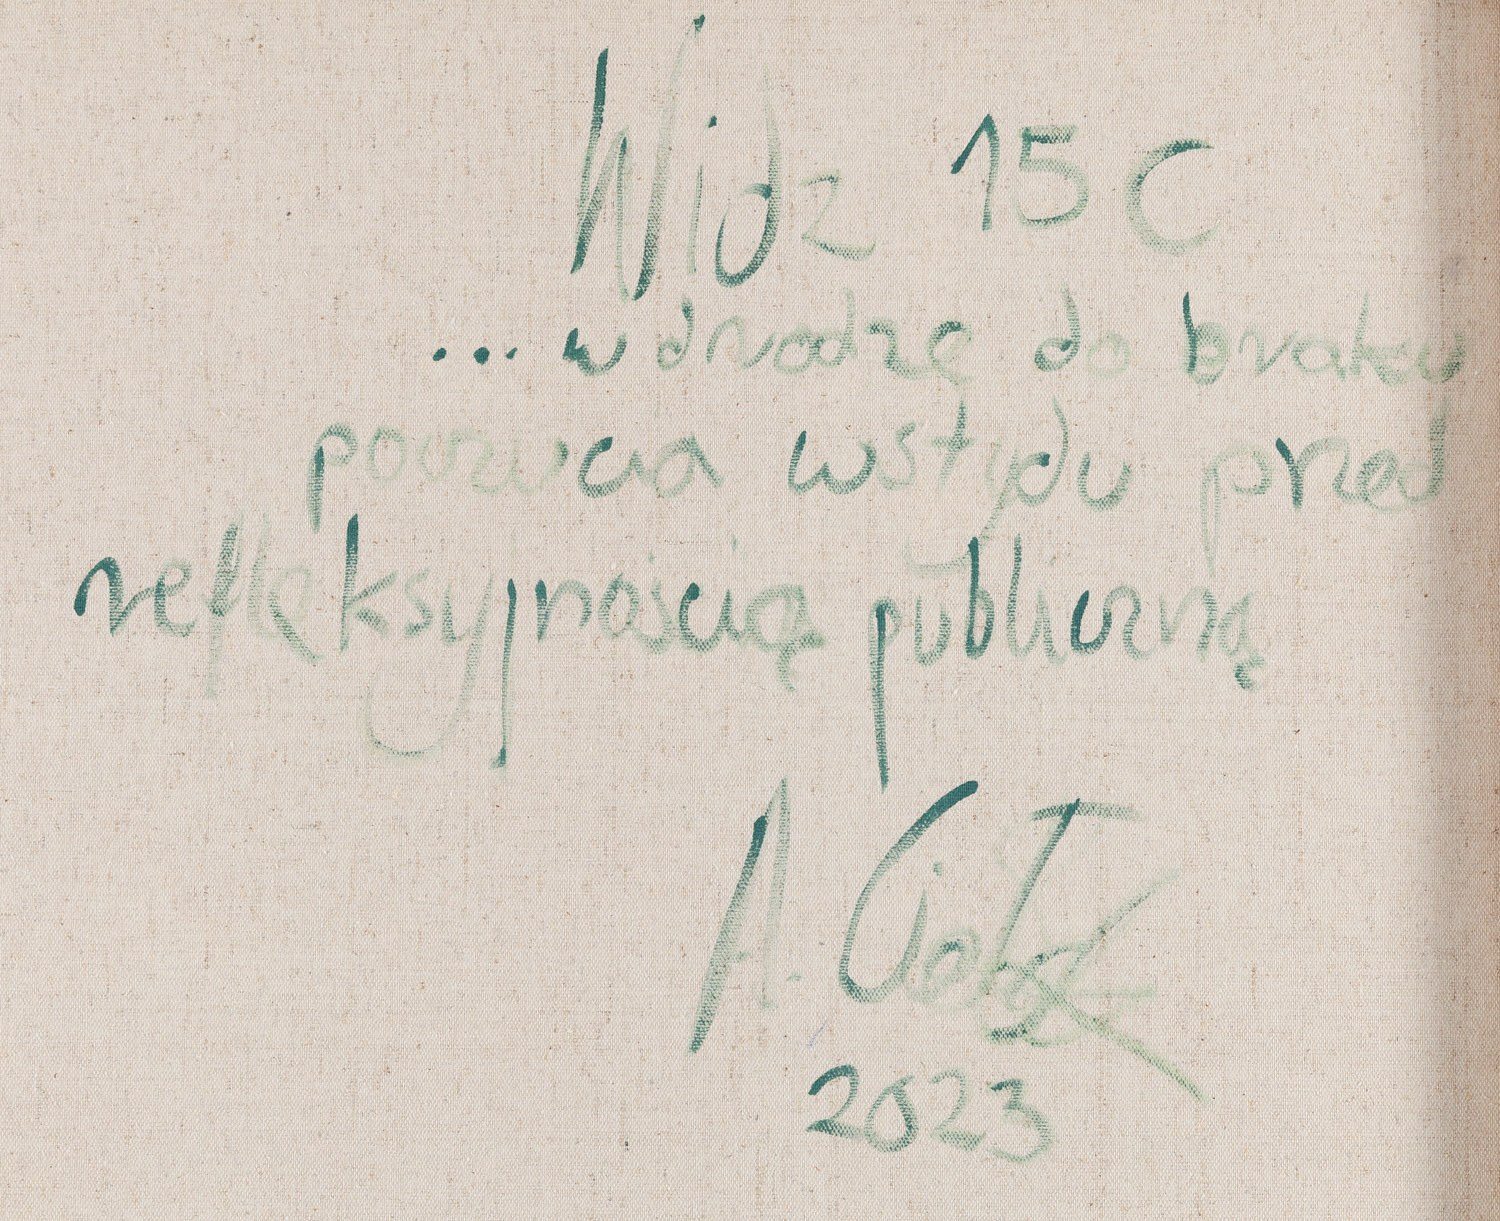 Widz 15 C
... w drodzę do braku
poczucia wstydu przed
refleksyjnością publiczną
A.
2023